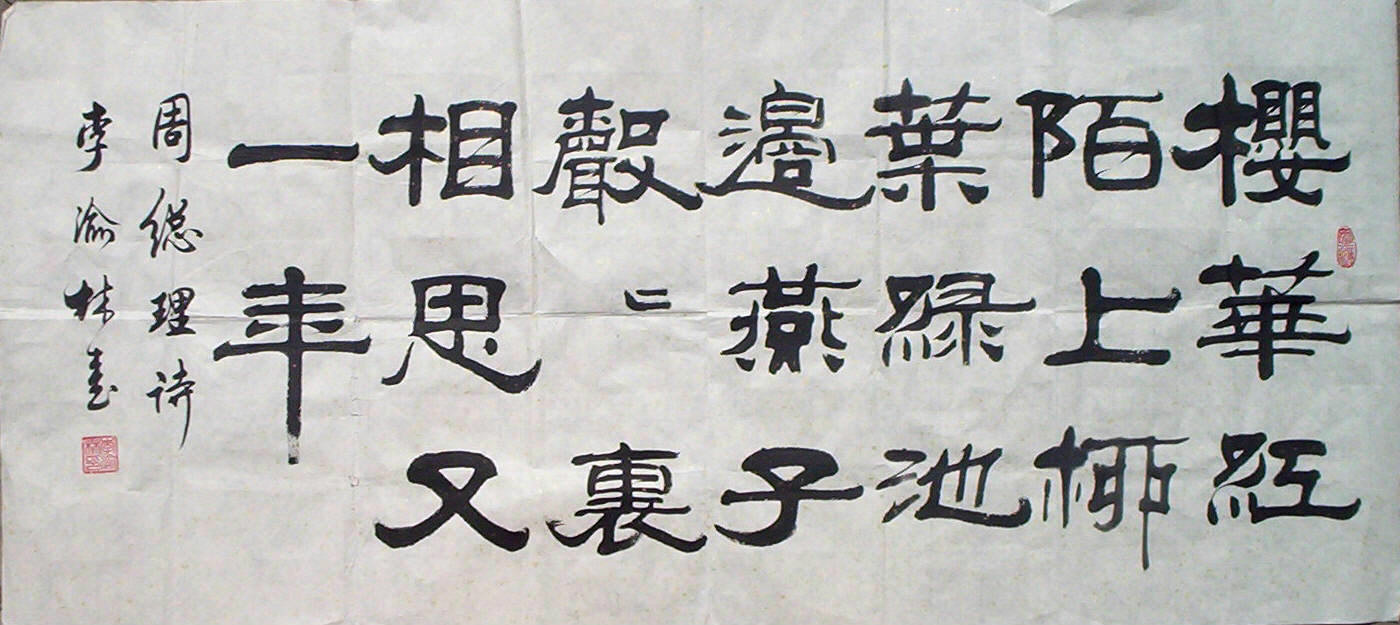 櫻華紅
陌上柳
葉綠池
邊燕子
聲二裏
相思又
一年
周總理詩
李渝林書